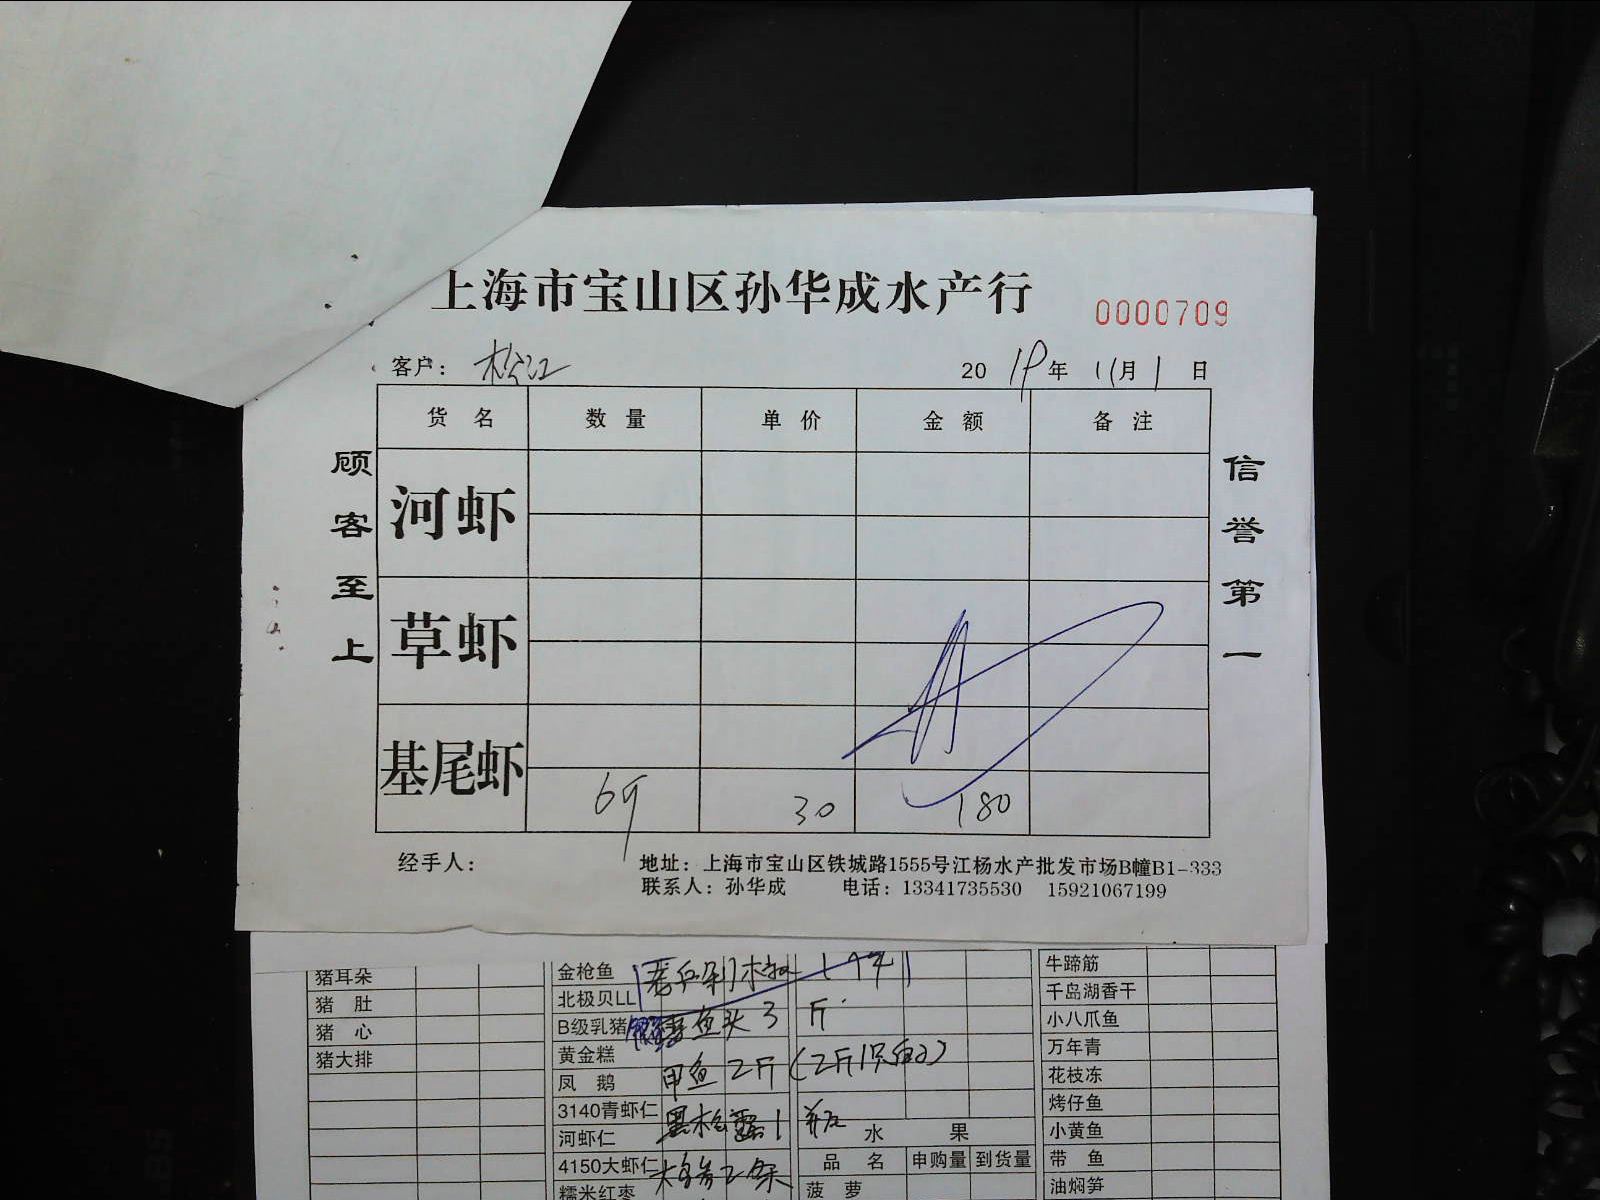 上海市宝山区孙华成水产行 0000709
客户： 松江 2019年 11月 1 日
货 名 数 量 单 价 金 额 备 注
顾客至上
河虾
草虾
基尾虾 69 30 180
信誉第一
经手人： 地址：上海市宝山区铁城路1555号江杨水产批发市场B幢B1-333
联系人：孙华成 电话：13341735530 15921067199
猪耳朵 金枪鱼 牛蹄筋
猪 肚 北极贝LL 千岛湖香干
猪 心 B级乳猪 鱼头 3 斤 小八爪鱼
猪大排 黄金糕 万年青
凤 鹅 甲鱼 2斤 花枝冻
3140青虾仁 黑松露 1 瓶 烤仔鱼
河虾仁 水 果 小黄鱼
4150大虾仁 品 名 申购量 到货量 带 鱼
糯米红枣 菠 萝 油焖笋